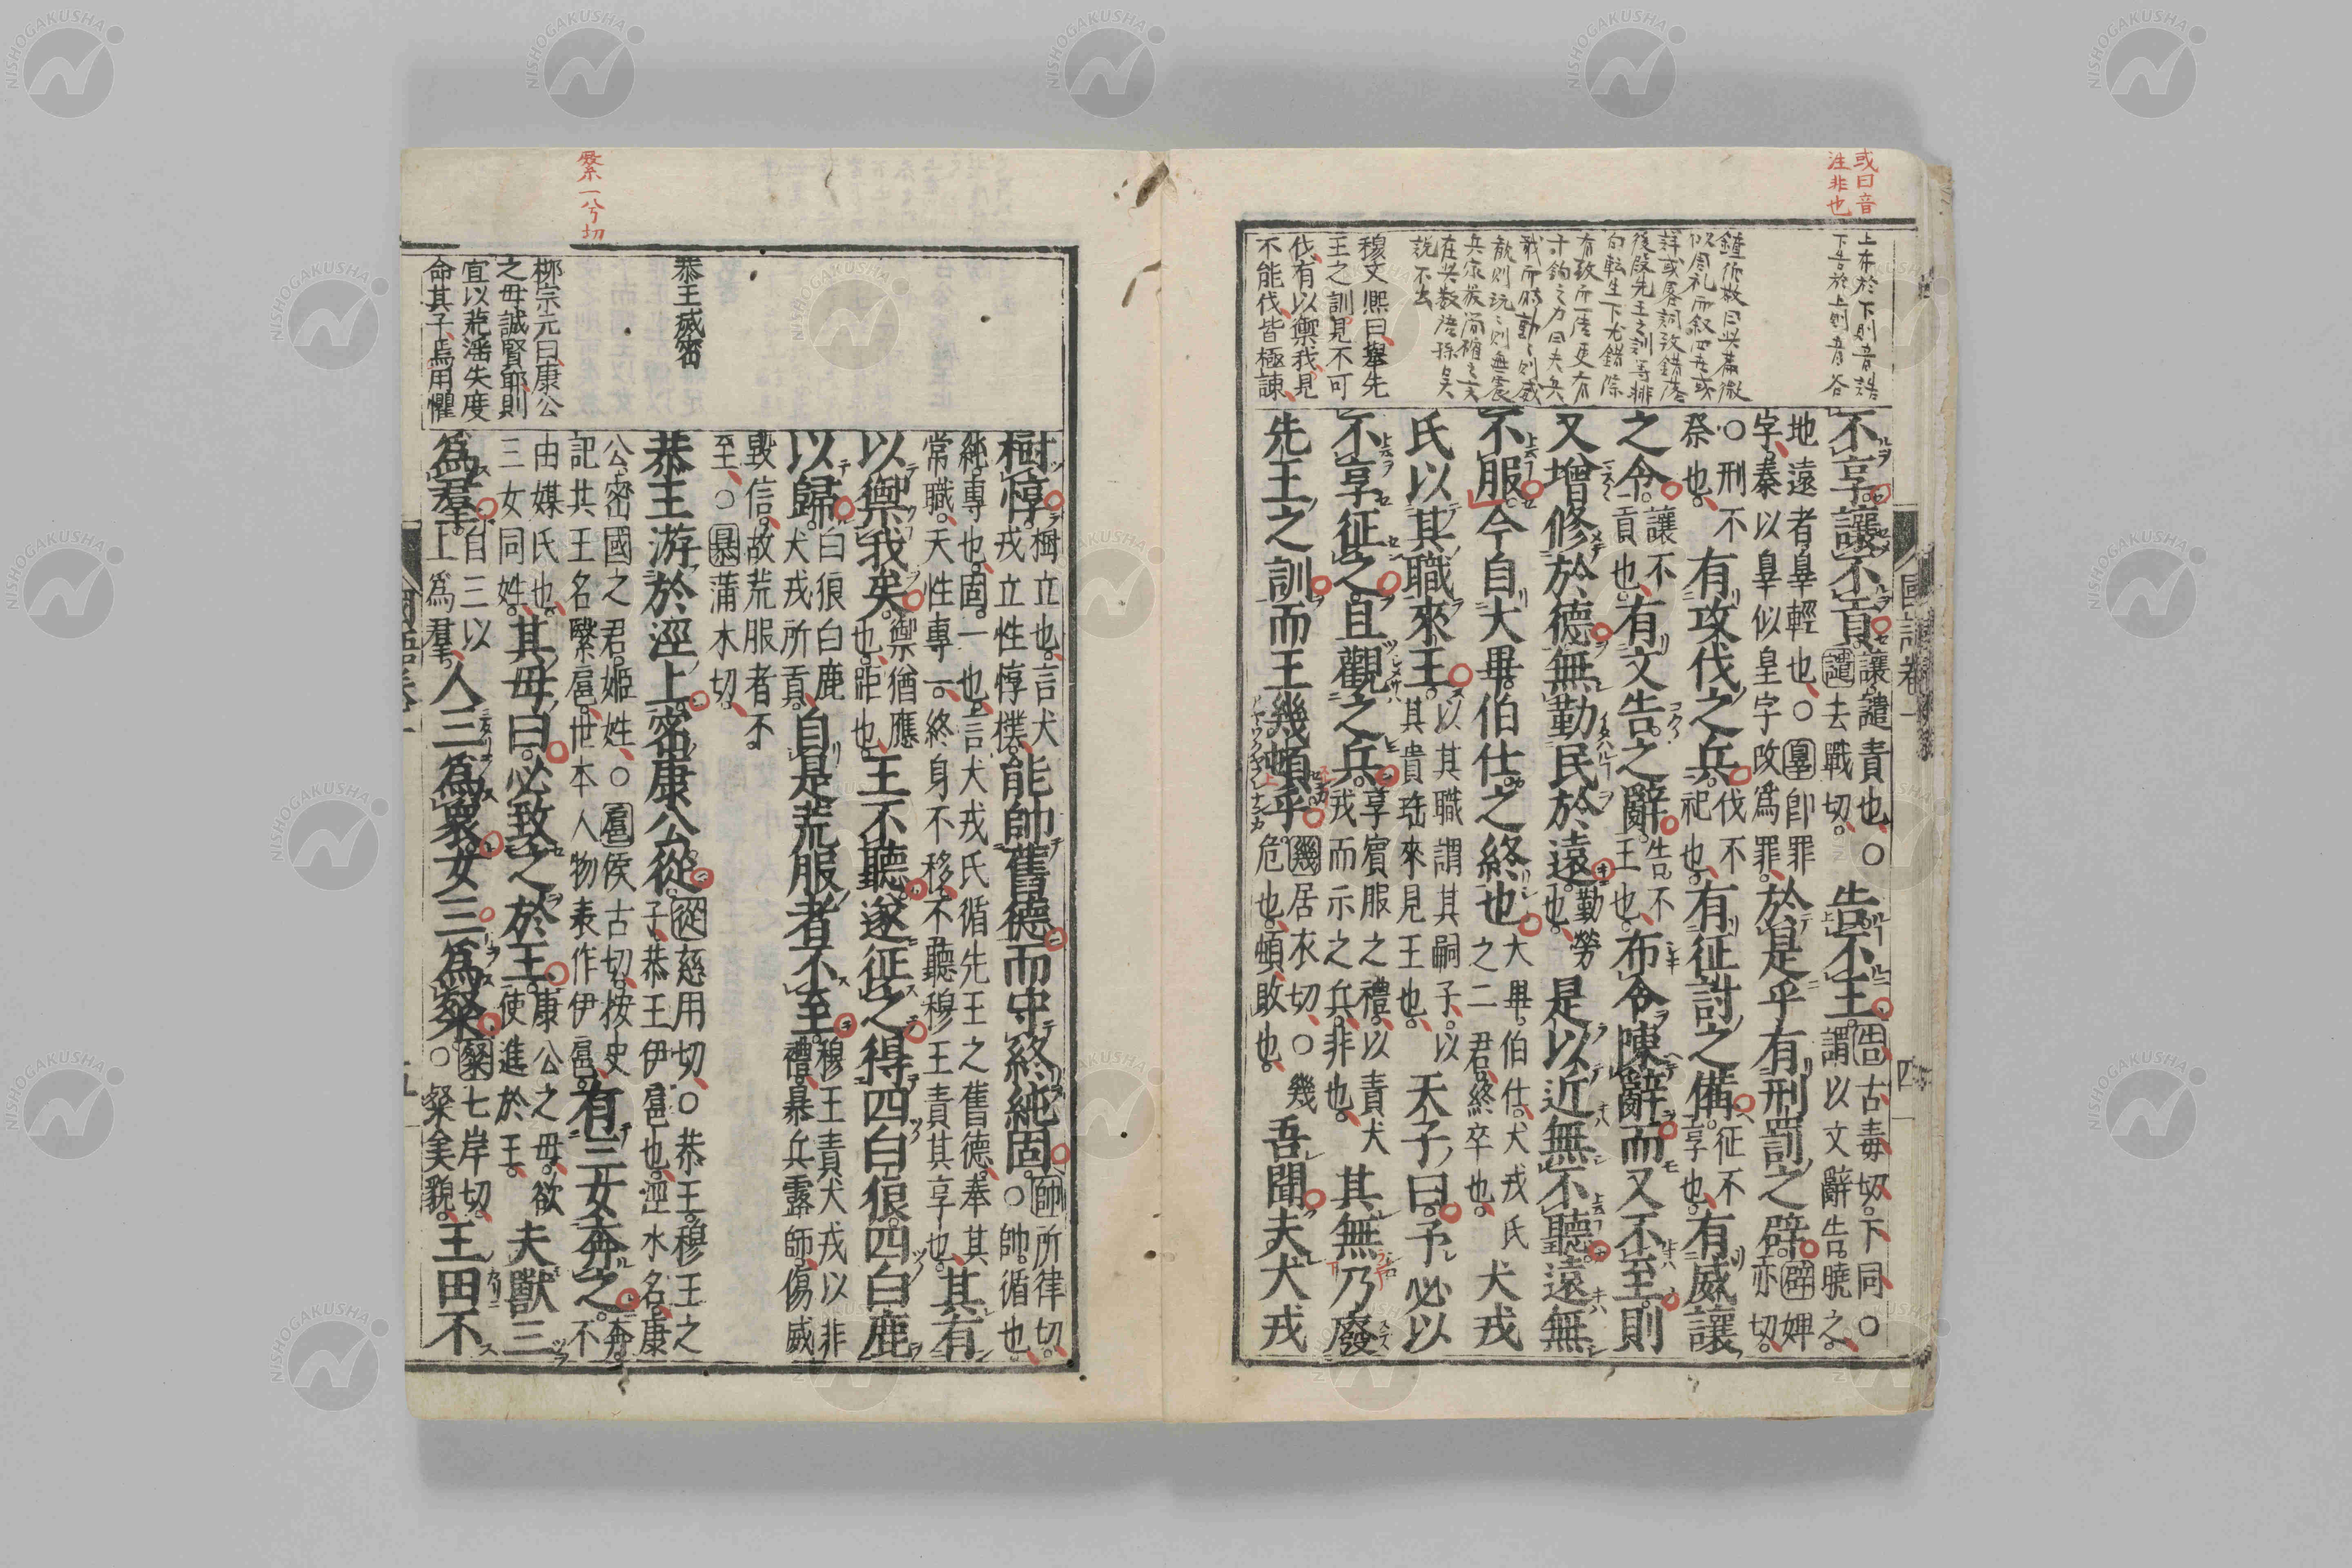 或曰音
注非也
上布於下則音誥
下告於上則音谷
穆文熙曰舉先
王之訓見不可
伐有以禦我見
不能伐皆極諫
不享讓不貢讓譴責也○譴去戰切告不王告古毒切下同○謂以文辭告曉之
地遠者辠輕也○辠卽罪字秦以辠似皇字改爲罪於是乎有刑罰之辟辟婢亦切
○刑不祭也有攻伐之兵伐不祀也有征討之備征不享也有威讓
之令讓不貢也有文告之辭告不王也布令陳辭而又不至則
又增修於德無勤民於遠勤勞也是以近無不聽遠無
不服今自大畢伯仕之終也大畢伯仕犬戎氏之二君終卒也犬戎
氏以其職來王以其職謂其嗣子以其貴珤來見王也天子曰予必以
不享征之且觀之兵享賓服之禮以責犬戎而示之兵非也其無乃廢
先王之訓而王幾頓乎幾居衣切○幾危也頓敗也吾聞夫犬戎
國語卷一
四
繄一兮切
恭王滅密
柳宗元曰康公
之母誠賢耶則
宜以荒淫失度
命其子焉用懼
樹惇樹立也言犬戎立性惇樸能帥舊德而守終純固帥所律切○帥循也
純專也固一也言犬戎氏循先王之舊德奉其常職天性專一終身不移不聽穆王責其享也其有
以禦我矣禦猶應也距也王不聽遂征之得四白狼四白鹿
以歸白狼白鹿犬戎所貢自是荒服者不至穆王責犬戎以非禮暴兵露師傷威
毀信故荒服者不至○暴蒲木切
恭王游於涇上密康公從從慈用切○恭王穆王之子恭王伊扈也涇水名康
公密國之君姬姓○扈侯古切按史記共王名繄扈世本人物表作伊扈有三女奔之奔不
由媒氏也三女同姓其母曰必致之於王康公之母欲使進於王夫獸三
爲羣自三以上爲羣人三爲衆女三爲粲粲七岸切○粲美貌王田不
國語卷一
五